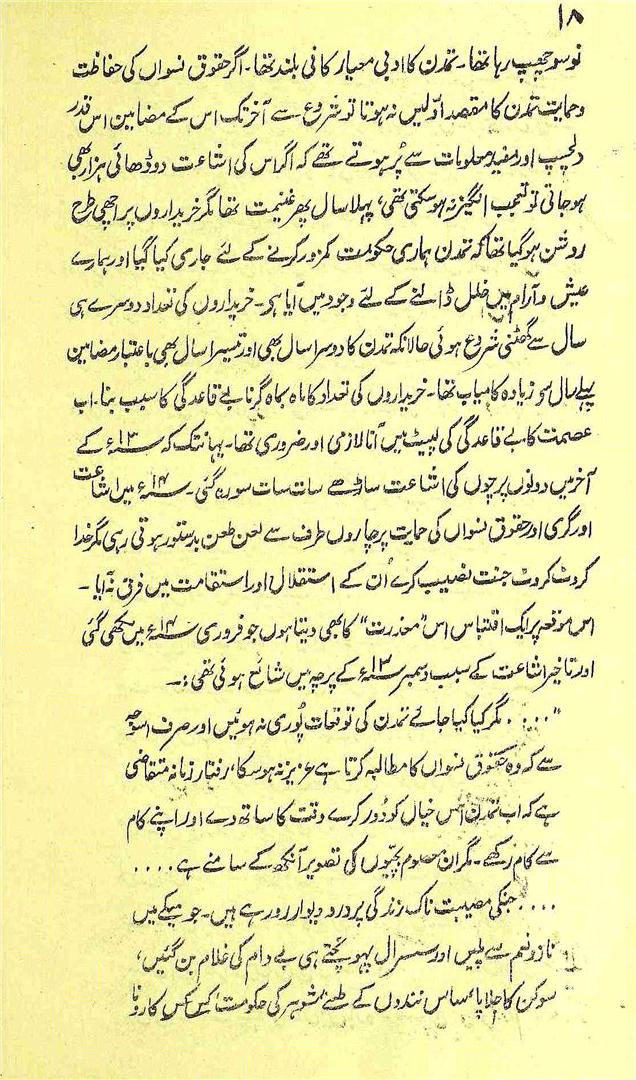 ۱۸
نو سو چھپ رہا تھا۔ تمدن کا ادبی معیار کافی بلند تھا۔ اگر حقوق نسواں کی حفاظت
و حمایت تمدن کا مقصد اوّلیں نہ ہوتا تو شروع سے آخر تک اس کے مضامین اس قدر
دلچسپ اور مفید معلومات سے پُر ہوتے تھے کہ اگر اس کی اشاعت دو ڈھائی ہزار بھی
ہو جاتی تو تعجب انگیز نہ ہو سکتی تھی، پہلا سال پھر غنیمت تھا مگر خریداروں پر اچھی طرح
روشن ہو گیا تھا کہ تمدن ہماری حکومت کمزور کرنے کے لئے جاری کیا گیا اور ہمارے
عیش و آرام میں خلل ڈالنے کے لئے وجود میں آیا ہی۔ خریداروں کی تعداد دوسرے ہی
سال سے گھٹنی شروع ہوئی حالانکہ تمدن کا دوسرا سال بھی اور تیسرا سال بھی باعتبار مضامین
پہلے سال سو زیادہ کامیاب تھا۔ خریداروں کی تعداد کا ماہ بماہ گرنا بے قاعدگی کا سبب بنا۔ اب
عصمت کا بے قاعدگی کی لپیٹ میں آنا لازمی اور ضروری تھا۔ یہانتک کہ ۱۳ء کے
آخر میں دونوں پرچوں کی اشاعت ساڑھے سات سات سو رہ گئی۔ ۱۴ء میں اشاعت
اور گری اور حقوق نسواں کی حمایت پر چاروں طرف سے لعن طعن بدستور ہوتی رہی مگر خدا
کروٹ کروٹ جنت نصیب کرے اُن کے استقلال اور استقامت میں فرق نہ آیا۔
اس موقعہ پر ایک اقتباس اس "معذرت" کا بھی دیتا ہوں جو فروری ۱۴ء میں لکھی گئی
اور تاخیر اشاعت کے سبب دسمبر ۱۳ء کے پرچہ میں شائع ہوئی تھی :۔
"۔۔۔۔ مگر کیا کیا جائے تمدن کی توقعات پُوری نہ ہوئیں اور صرف اسوجہ
سے کہ وہ حقوق نسواں کا مطالبہ کرتا ہے عزیز نہ ہو سکا، رفتار زمانہ متقاضی
ہے کہ اب تمدن اس خیال کو دُور کرے وقت کا ساتھ دے اور اپنے کام
سے کام رکھے۔ مگر ان معصوم بچیوں کی تصویر آنکھ کے سامنے ہے ۔۔۔۔
۔۔۔۔ جنکی مصیبت ناک زندگی پر در و دیوار رو رہے ہیں۔ جو میکے میں
ناز و نعم سے پلیں اور سسرال پہونچتے ہی بے دام کی غلام بن گئیں،
سوکن کا جلاپا، ساس نندوں کے طعنے، شوہر کی حکومت، کس کس کا رونا